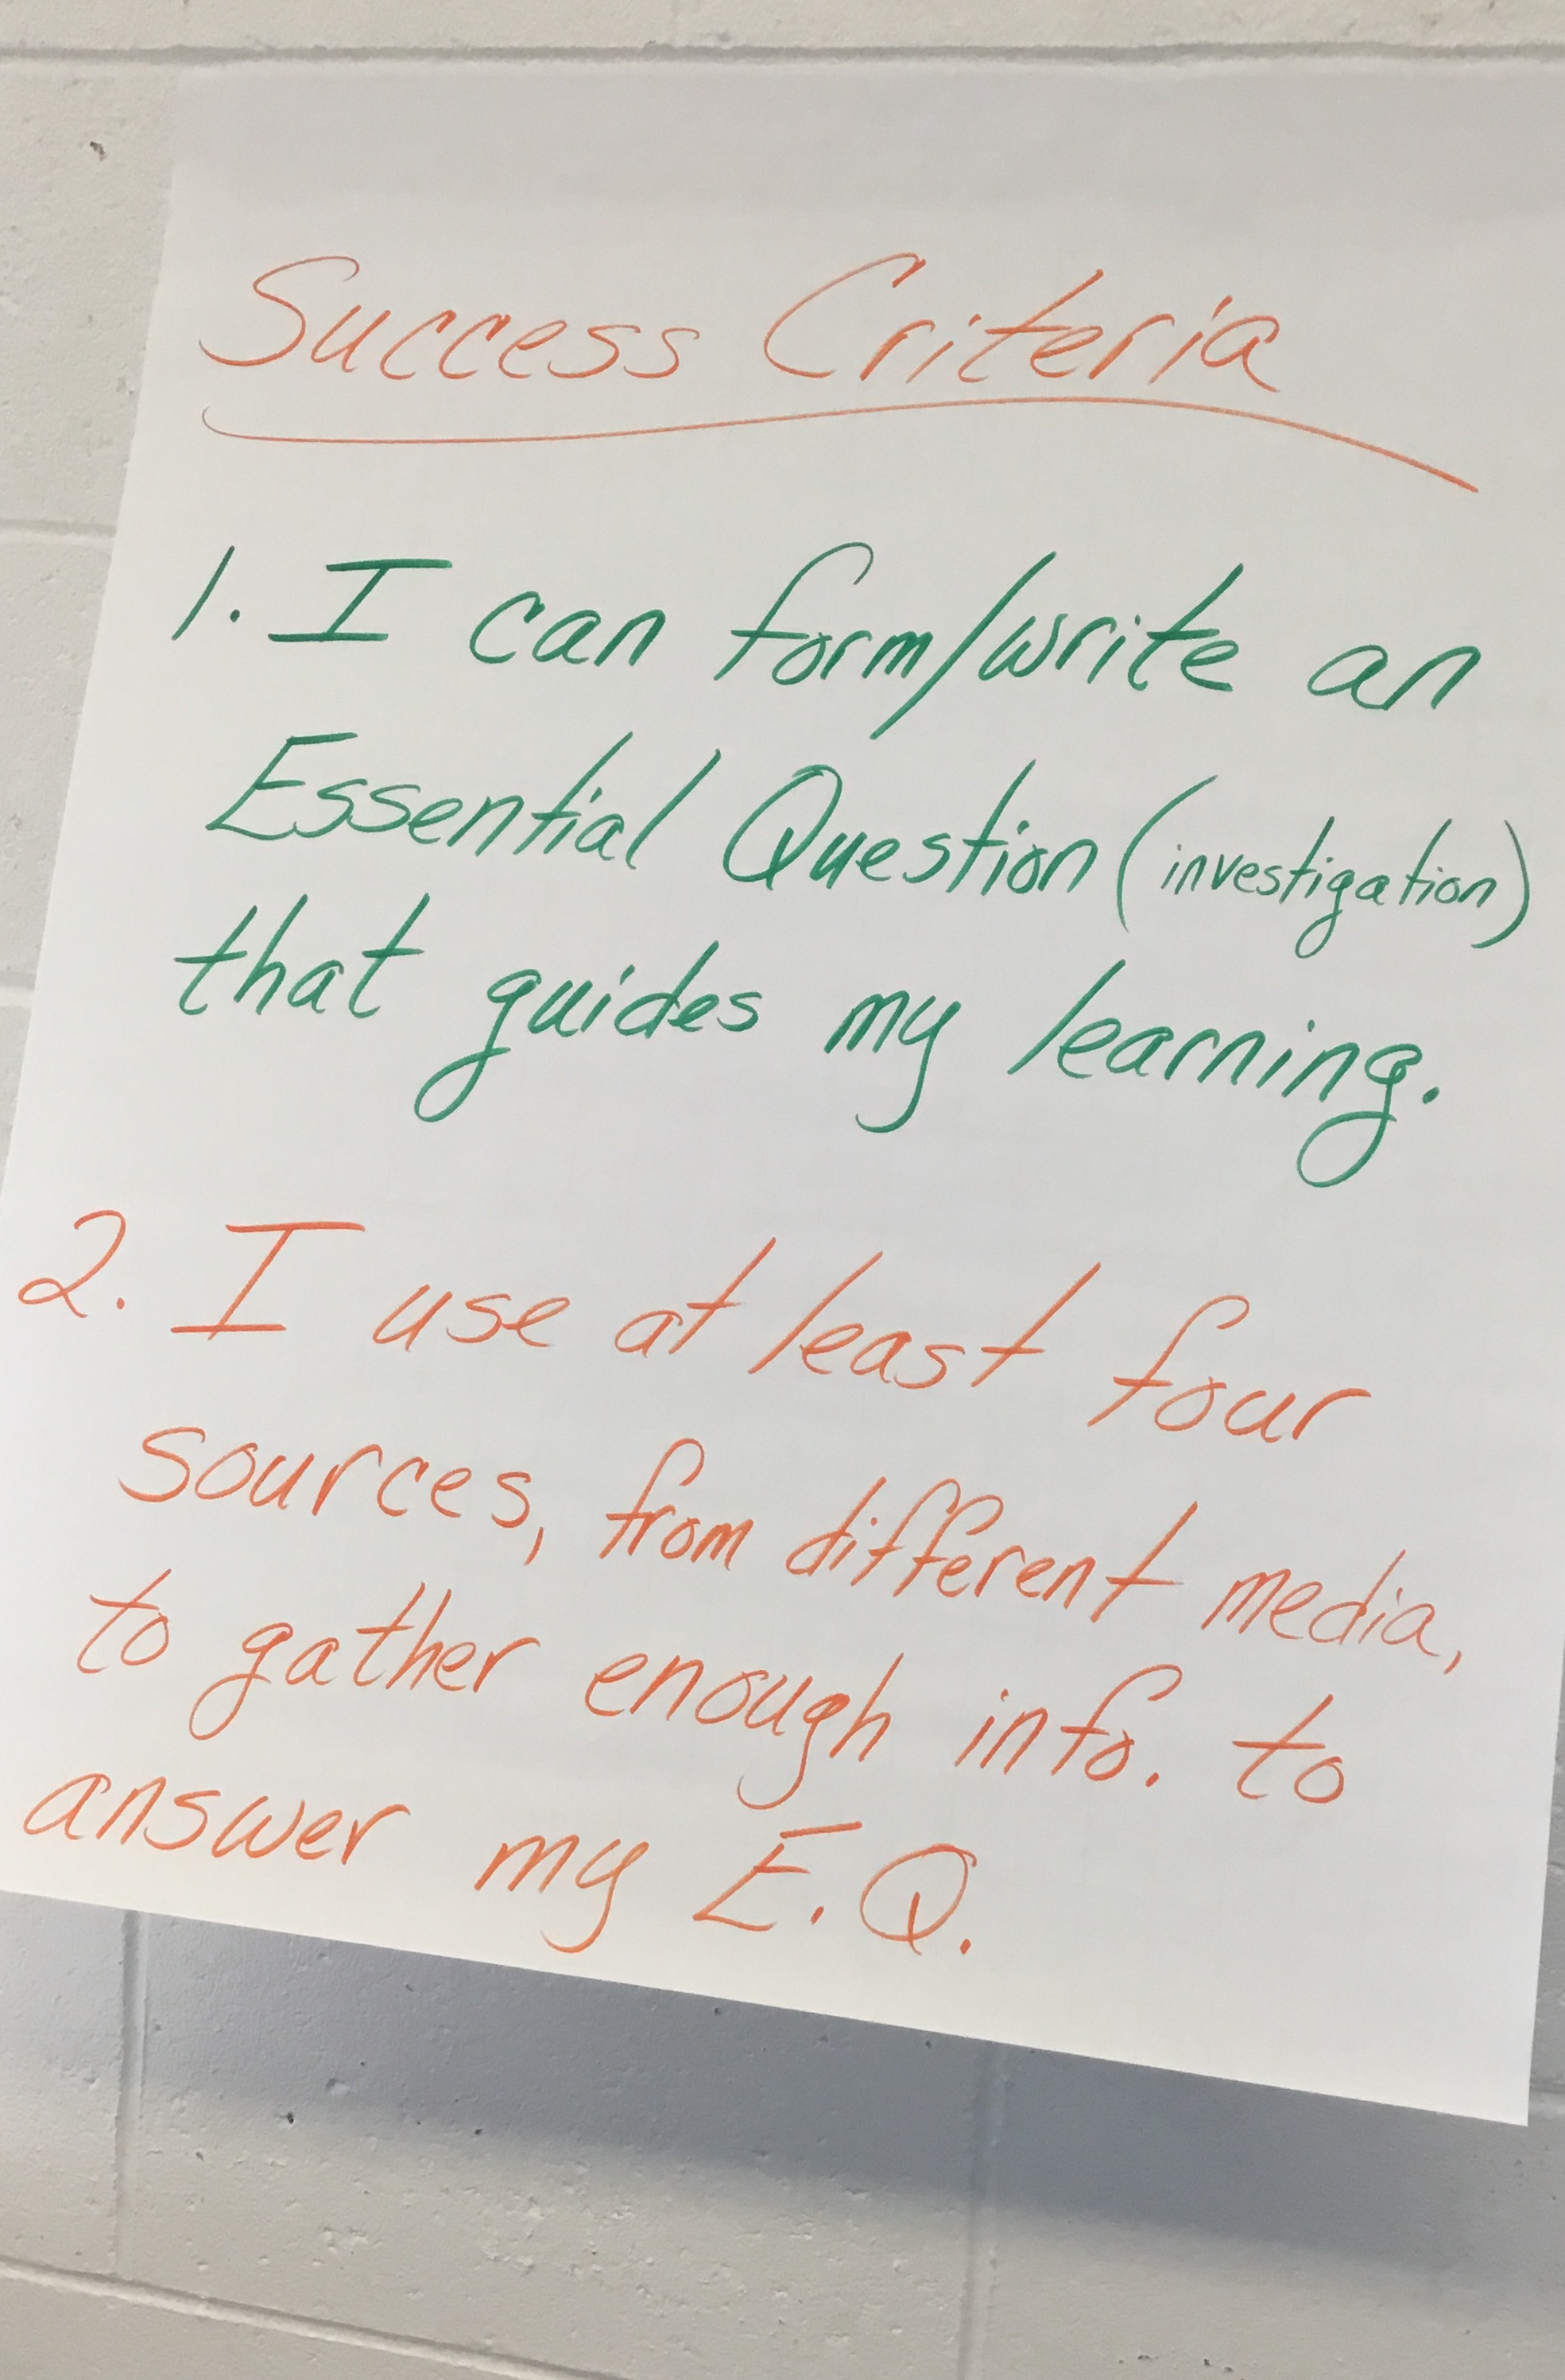 Success Criteria
1. I can form/write an
Essential Question (investigation)
that guides my learning.
2. I use at least four
sources, from different media,
to gather enough info. to
answer my E.Q.